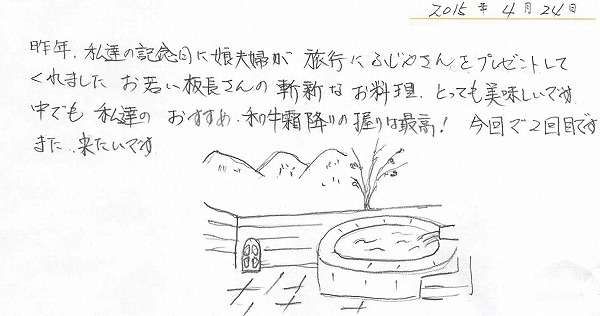 2015年4月24日
昨年、私達の記念日に娘夫婦が旅行にふじやさんをプレゼントして
くれました お若い板長さんの斬新なお料理、とっても美味しいです
中でも 私達の おすすめ、和牛霜降りの握りは最高! 今回で2回目です
また、来たいです